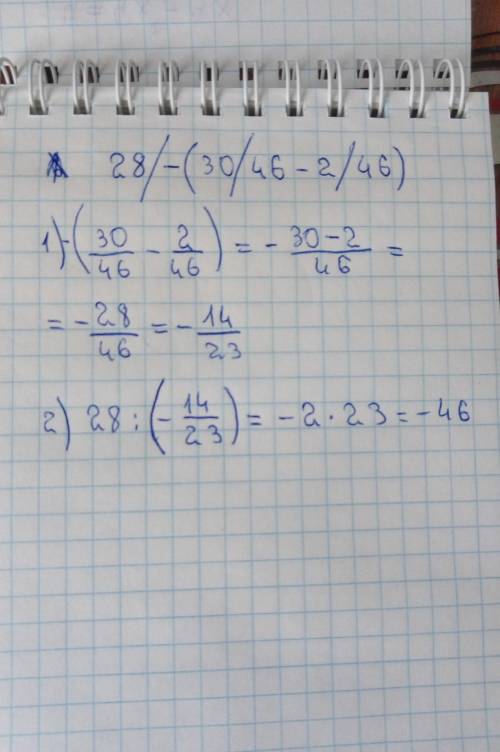 28/-(30/46-2/46)
1) -(30/46 - 2/46) = - 30-2/46 =
= - 28/46 = - 14/23
2) 28 : (- 14/23) = -2 · 23 = -46